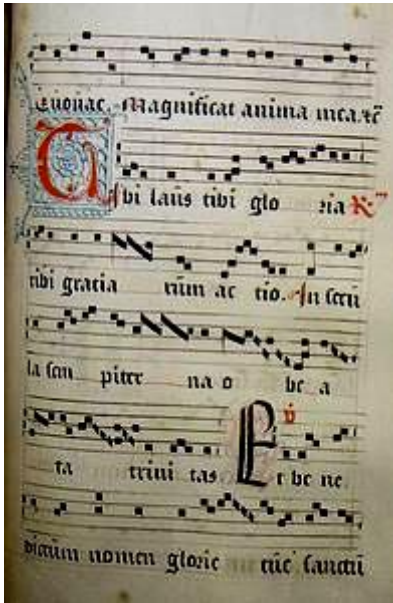 Euouae. Magnificat anima mea. tc̄
Tibi laus tibi glo ria
tibi gracia rum ac tio. In secu
la sem piter na o be a
ta trini tas Et be ne
dictum nomen glorie tue sanctū